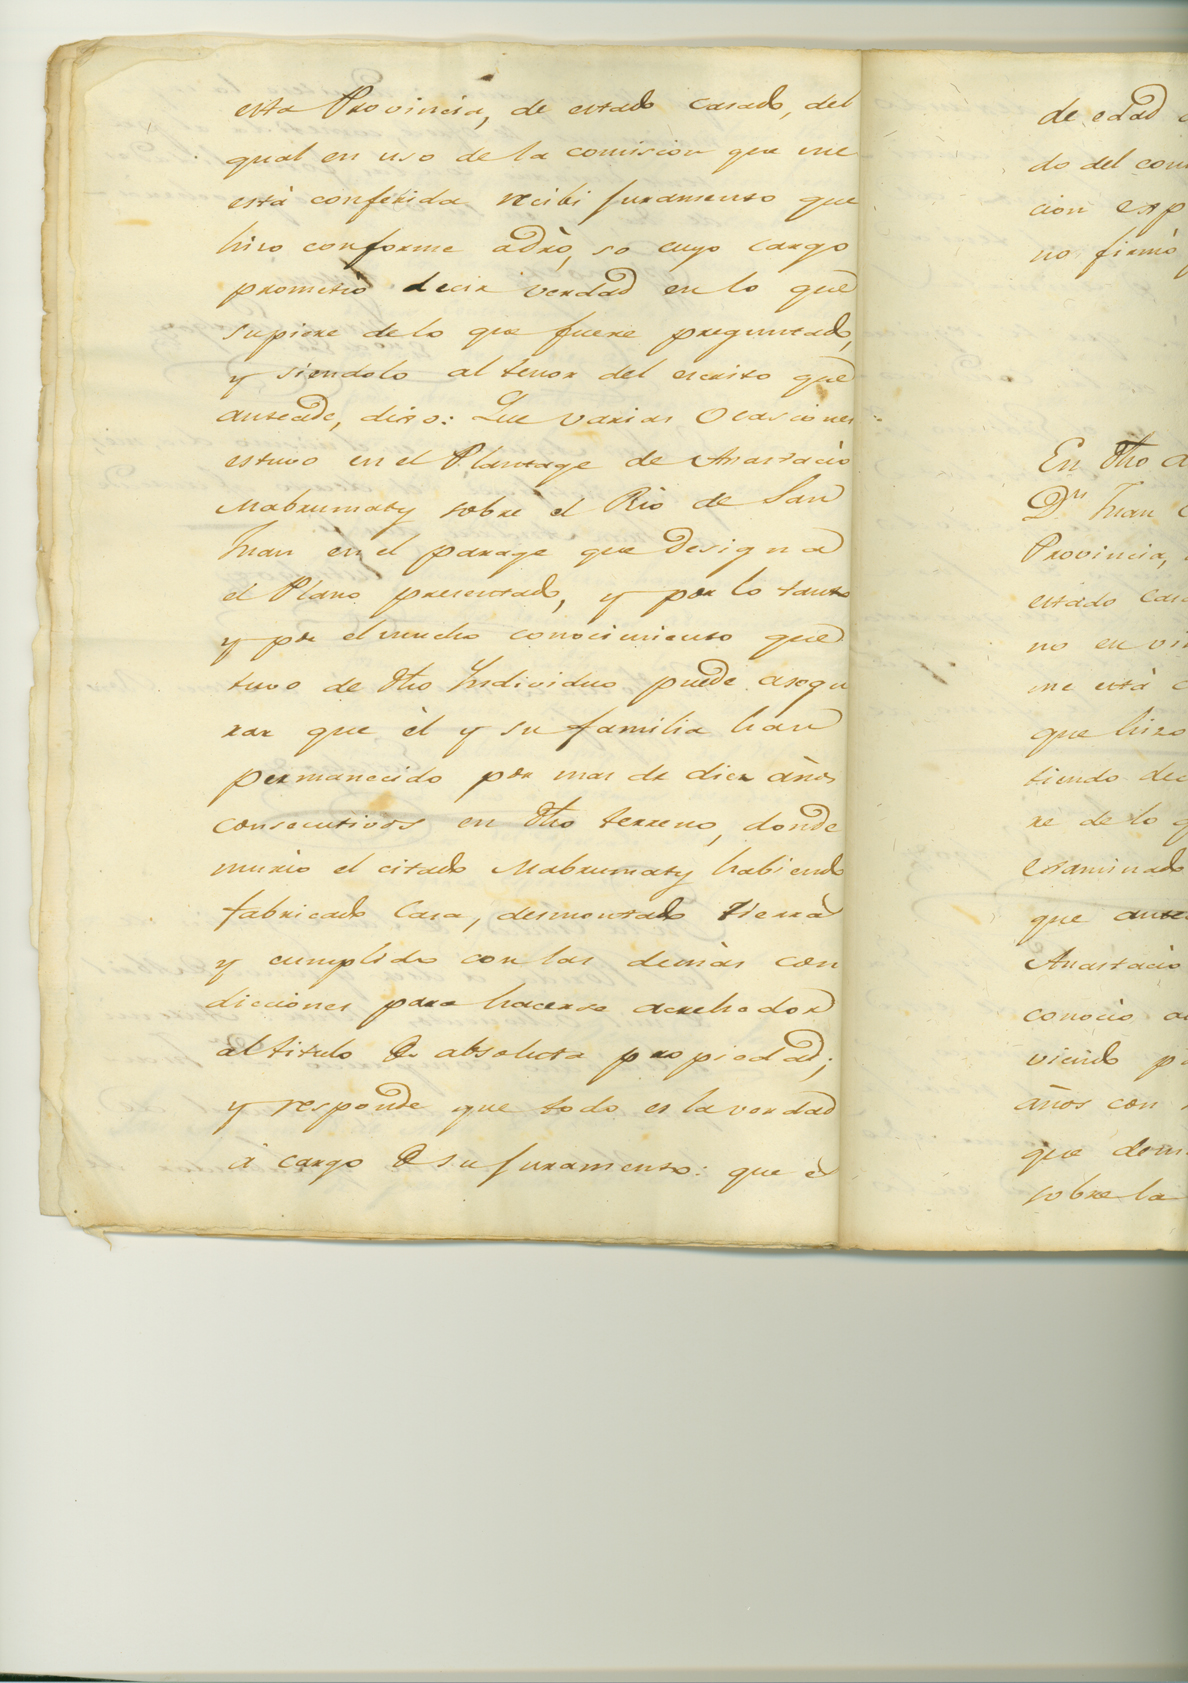 esta Provincia, de estado casado, del
qual en uso de la comision que me
està conferida recibi juramento que
hizo conforme a dro, so cuyo cargo
prometiò decir verdad en lo que
supiere de lo que fuere preguntado,
y siendolo al tenor del escrito que
antecede, dixo: Que varias Ocasiones
estuvo en el Plantage de Anastacio
Mabrumaty sobre el Rio de San
Juan en el parage que designa
el Plano presentado, y por lo tanto
y por el mucho conocimiento que
tuvo de dho Individuo puede asegu
rar que èl y su familia han
permanecido por mas de diez años
consecutivos en dho terreno, donde
muriò el citado Mabrumaty habiendo
fabricado Casa, desmontado tierra
y cumplido con las demàs con
dicciones para hacerse acrehedor
al titulo de absoluta propiedad;
y responde que todo es la verdad
à cargo de su juramento: que è
de edad
do del con
cion exp
no firmò
En dho
Dn Juan
Provincia,
estado cas
no en vir
me està c
que hizo
tiendo dec
re de lo q
examinado
que ante
Anastacio
conociò
viendo p
años con
que dem
sobre la